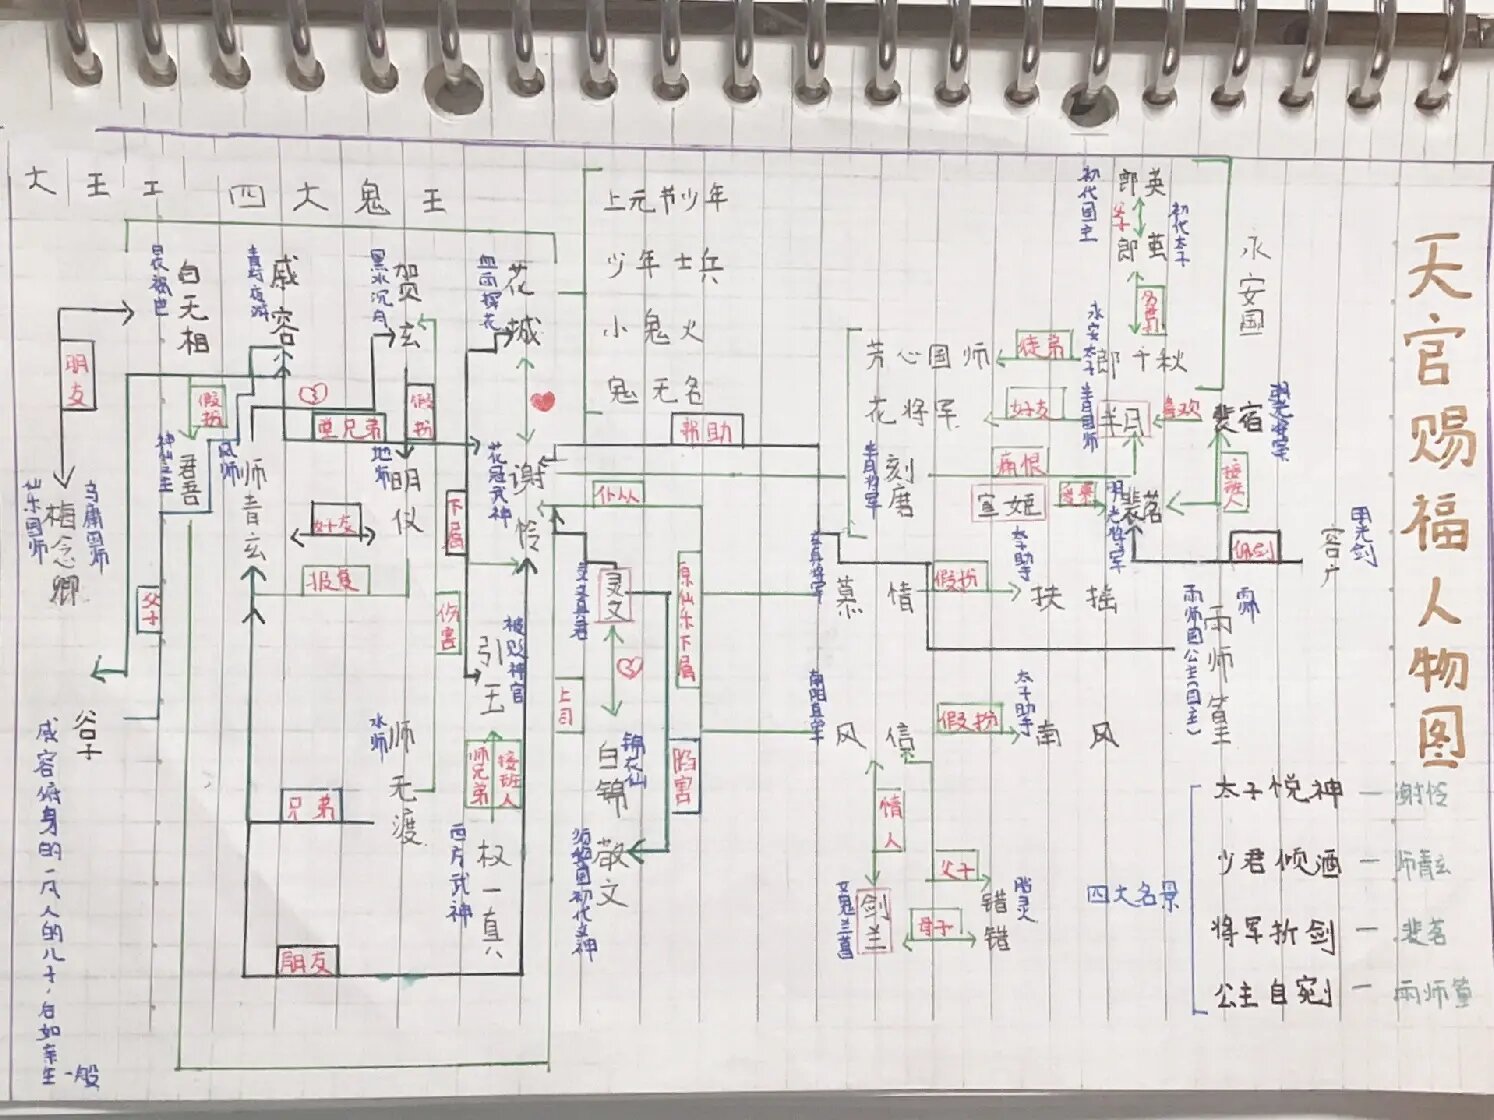 天官赐福人物图
大王工
四大鬼王
白无相
戚容
青灯夜游
贺玄
黑水沉舟
花城
血雨探花
上元节少年
少年士兵
小鬼火
鬼无名
初代国主
郎英
父子
郎茧
初代太子
永安国
芳心国师
徒弟
永安太子
郎千秋
花将军
好友
半月国师
半月
喜欢
裴宿
半月将军
刻磨
痛恨
宣姬
明光将军
裴茗
接班人
佩剑
容广
明光剑
朋友
假扮
君吾
风师
师青玄
堂兄弟
地师
明仪
假扮
下属
花冠武神
谢怜
帮助
仆从
梅念卿
仙乐国师
乌庸国师
好友
报复
父子
谷子
戚容俯身的一凡人的儿子,自如亲生一般
水师
师无渡
兄弟
朋友
伤害
引玉
被贬神官
师兄弟
接班人
西方武神
权一真
上司
灵文真君
灵文
锦衣仙
白锦
敬文
须黎国初代文神
原仙乐下属
陷害
玄真将军
慕情
假扮
太子助手
扶摇
雨师
雨师国公主(国主)
雨师篁
南阳真军
风信
假扮
太子助手
南风
情人
女鬼兰菖
剑兰
父子
母子
错错
胎灵
四大名景
太子悦神 — 谢怜
少君倾酒 — 师青玄
将军折剑 — 裴茗
公主自刎 — 雨师篁